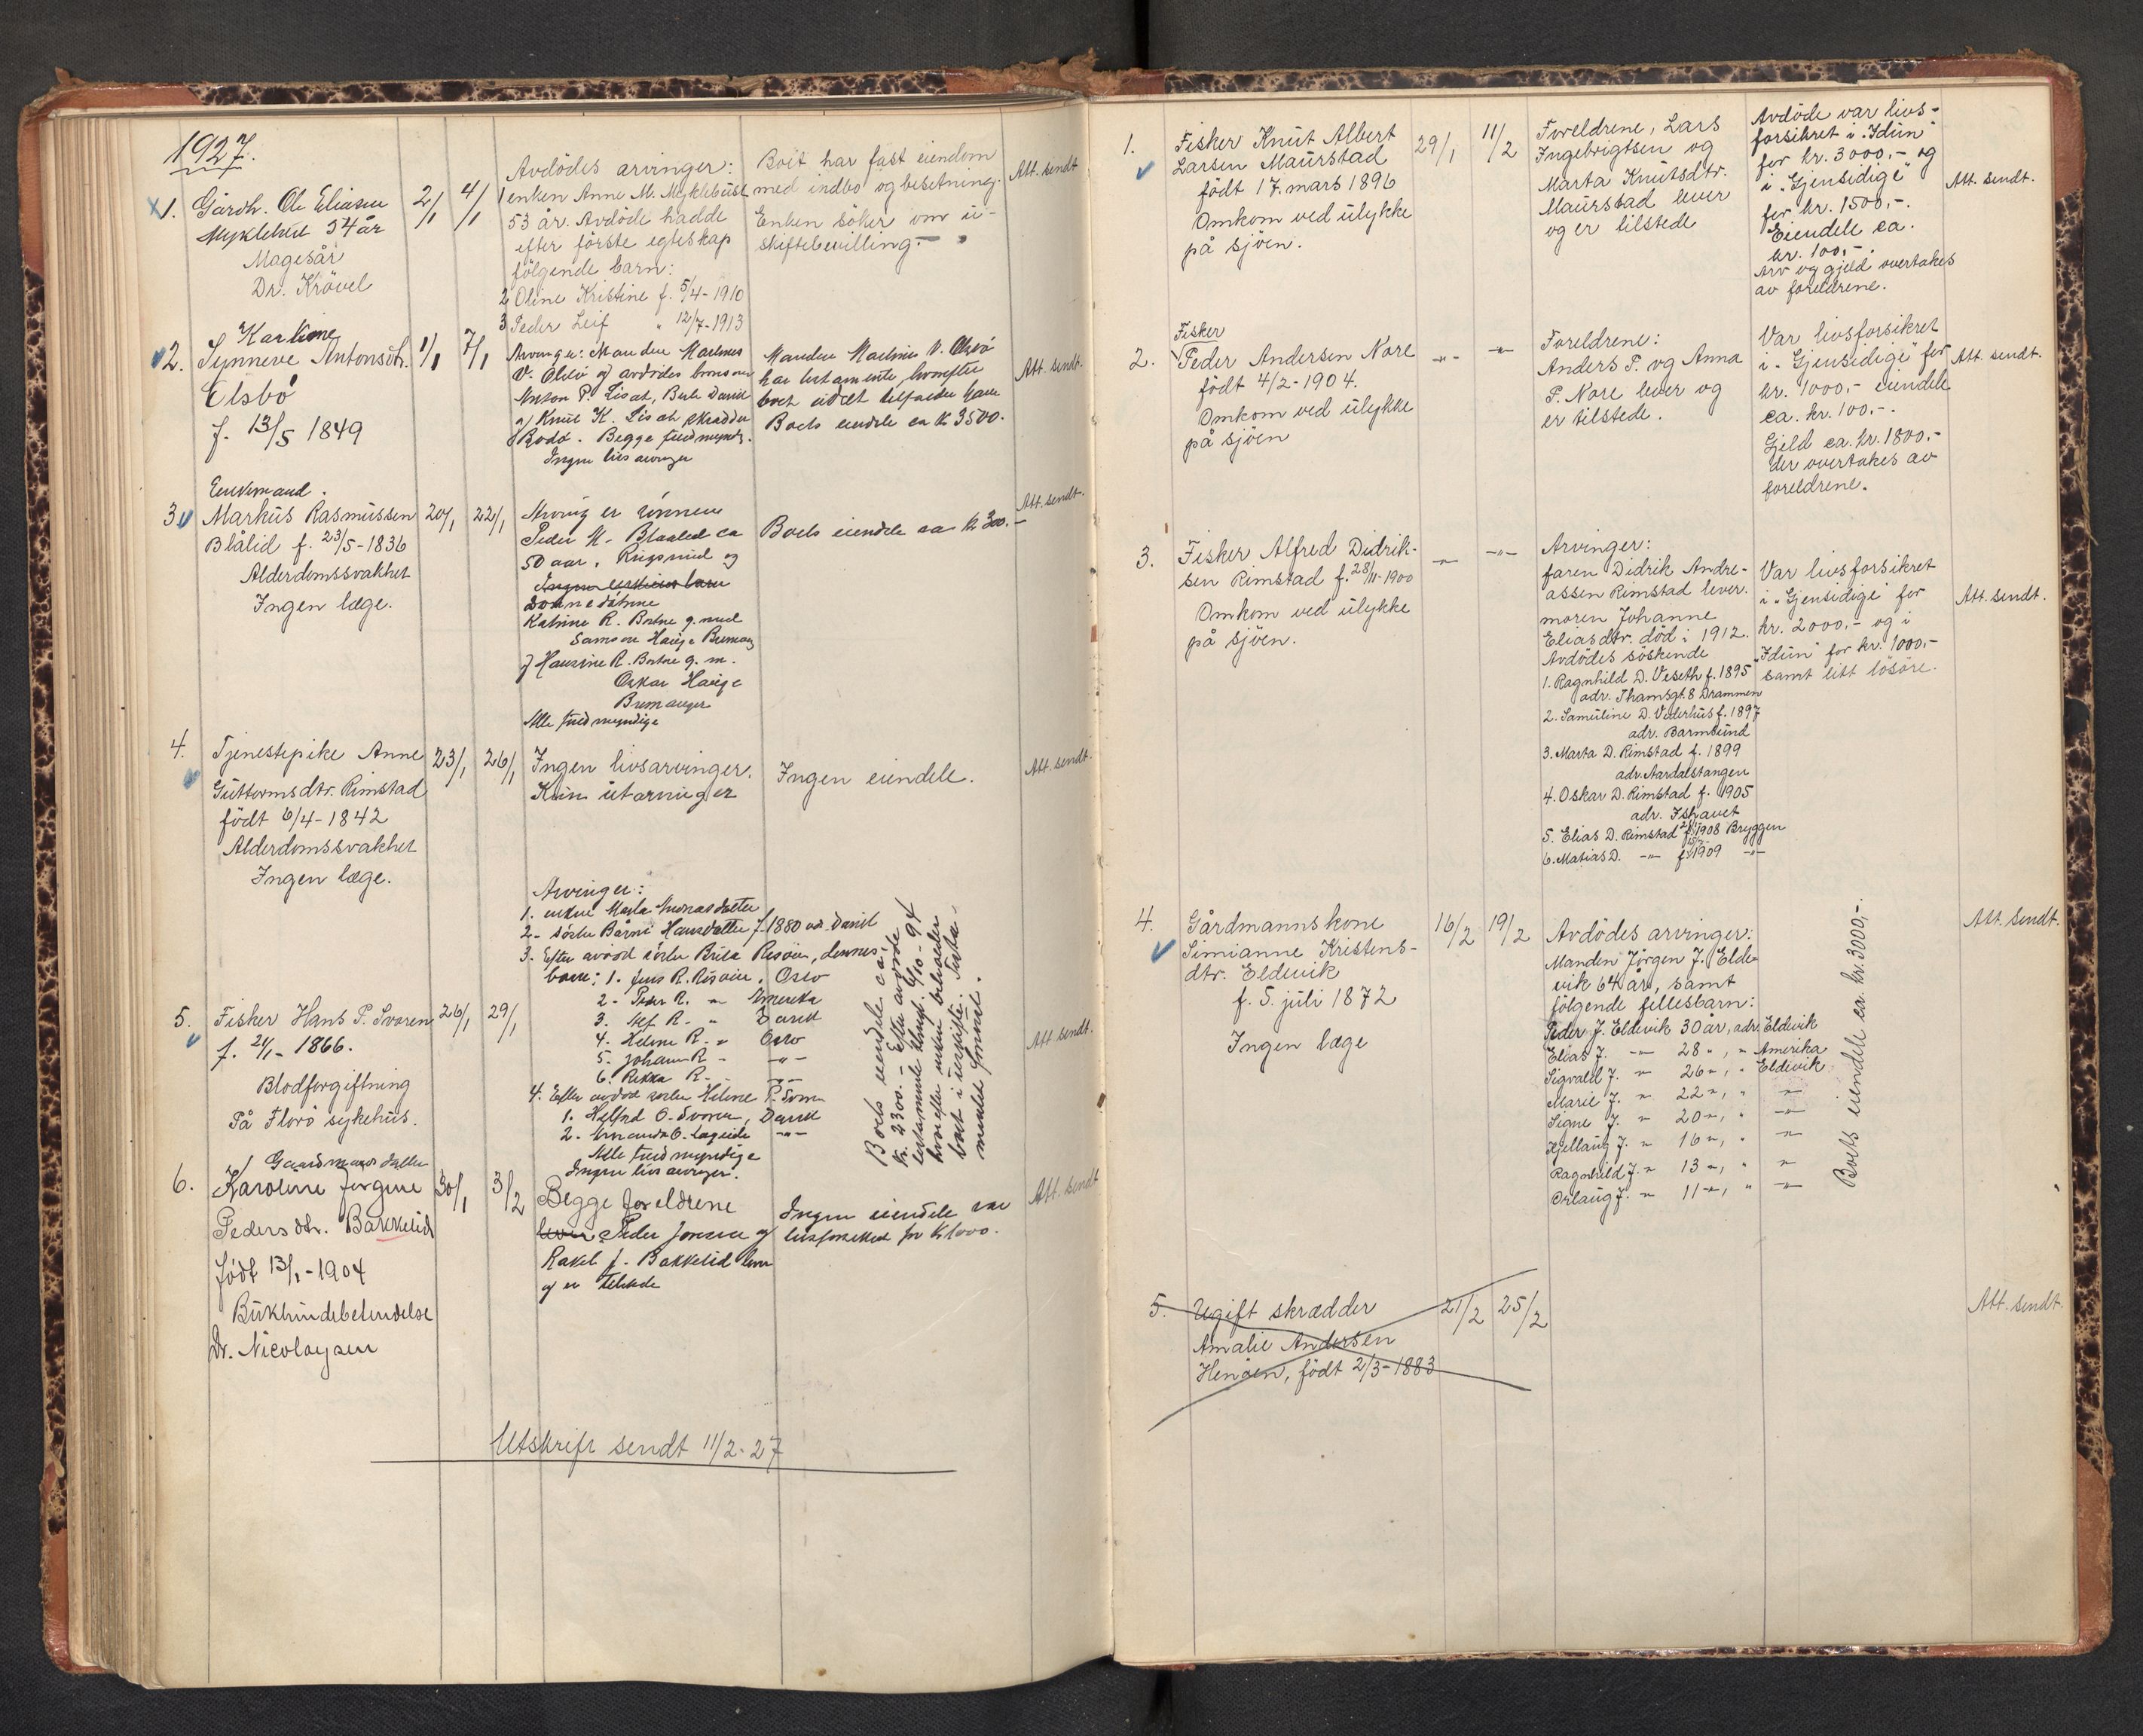 1927.
1. Gårdb. Ole Eliasen
Myklebust 54 år
Magesår
Dr. Krövel
2/1
4/1
Avdödes arvinger:
1 enken Anne M. Myklebust
53 år. Avdöde hadde
efter förste egteskap
følgende barn:
2 Oline Kristine f. 5/4-1910
3 Peder Leif " 12/7-1913
Boet har fast eiendom
med indbo og besetning.
Enken söker om u-
skiftebevilling.
Att. sendt
Karline
2. Synneve Antonsdtr.
Elsbö
f. 13/5 1849
1/1
7/1
Arvinger: Manden
V. Elsbö og avdödes
Anton P. Lisæt,
og Knut K. Lisæt, skrædder
Bodø. Begge fuldmyndg.
Ingen livsarvinger
Manden V. Elsbö
har testamente, hvorefter
boet tilfalder ham
Boets eiendele ca kr 3500.
Att. sendt.
Enkemand.
3. Markus Rasmussen
Blålid f. 23/5-1836
Alderdomssvakhet
Ingen læge.
20/1
22/1
Arving er sönnen
Peder M. Blaalid ca
50 aar, Rugsund og
Katrine R. Botne g. med
Samson Hauge Bremang
og Hansine R. Botne g. m.
Oskar Hauge
Bremanger
Alle fuldmyndige
Boets eiendele ca kr 300.-
Att. sendt.
4. Tjenestepike Anne
Guttormsdtr. Rimstad
født 6/4-1842
Alderdomssvakhet
Ingen læge.
23/1
26/1
Ingen livsarvinger.
Kun utarvinger
Ingen eiendele.
Att. sendt.
5. Fisker Hans P. Svoren
f. 24/1-1866.
Blodforgiftning
På Florö sykehus.
26/1
29/1
Arvinger:
1. enken Marta
2. søster Hansdatter f. 1880
3. Efter avdød søster Risöien, dennes
barn: 1. Jens R. Risöien, Oslo
2. Peder R. " Amerika
3. R. "
4. Helene R. " Oslo
5. Johan R. " -"-
6. Rikka R. -"-
4. Efter avdöd søster Helene P. Svoren
1. O. Svoren,
2. O. -"-
Alle fuldmyndige
Ingen livsarvinger.
Boets eiendele ca.
kr. 2300.- Efter avdöde
testamente 6/10-94
hvorefter enken beholder
boet i uskifte. Testa-
mentet
Att. sendt.
Gaardmandsdatter
6. Karoline Jørgine
Pedersdtr. Bakkelid
født 13/1-1904
Bukhindebetendelse
Dr. Nicolaysen
30/1
3/2
Begge foreldrene
Peder Jensen og
Rakel J. Bakkelid lever
og er tilstede
Ingen eiendele var
livsforsikret for kr 1000.
Att. sendt
Utskrift sendt 11/2-27
1. Fisker Knut Albert
Larsen Maurstad
født 17. mars 1896
Omkom ved ulykke
på sjöen.
29/1
11/2
Foreldrene, Lars
Ingebrigtsen og
Marta Knutsdtr.
Maurstad lever
og er tilstede
Avdöde var livs-
forsikret i "Idun"
for kr. 3000,- og
i "Gjensidige"
for kr. 1500,-.
Eiendele ca.
kr. 100,-.
Arv og gjeld overtakes
av foreldrene.
Att. sendt.
Fisker
2. Peder Andersen Nore
født 4/2-1904.
Omkom ved ulykke
på sjöen
-"-
-"-
Foreldrene:
Anders P. og Anna
P. Nore lever og
er tilstede.
Var livsforsikret
i "Gjensidige" for
kr. 1000,- eiendele
ca. kr. 100,-.
Gjeld ca. kr. 1800,-
der overtakes av
foreldrene.
Att. sendt.
3. Fisker Alfred Didrik-
sen Rimstad f. 28/11-1900
Omkom ved ulykke
på sjöen.
-"-
-"-
Arvinger:
faren Didrik Andre-
assen Rimstad lever.
moren Johanne
Eliasdtr. död i 1912.
Avdödes söskende
1. Ragnhild D. Veseth f. 1895
adr. Thamsgt. 8 Drammen
2. Samuline D. Vederhus f. 1897
adr. Barmsund
3. Marta D. Rimstad f. 1899
adr. Aardalstangen
4. Oskar D. Rimstad f. 1905
adr. Ishavet
5. Elias D. Rimstad 1908 Bryggen
6. Matias D. -"- f. 1909 -"-
Var livsforsikret
i "Gjensidige" for
kr. 2000,- og i
"Idun" for kr. 1000,-
samt litt lösöre.
Att. sendt.
4. Gårdmannskone
Simianne Kristens-
dtr. Eldevik
f. 5. juli 1872
Ingen læge
16/2
19/2
Avdödes arvinger:
Manden Jörgen J. Elde-
vik 64 år, samt
følgende fellesbarn:
Peder J. Eldevik 30 år, adr. Eldevik
Elias J. -"- 28 ", " Amerika
Sigvald J. " 26 ", " Eldevik
Marie J. " 22 ", " -"-
Signe J. " 20 ", " -"-
Kjellaug J. " 16 ", " -"-
Ragnhild J. " 13 ", " -"-
Orlaug J. " 11 ", " -"-
Boets eiendele ca. kr. 3000,-.
Att. sendt.
5. Ugift skrædder
Amalie Andersen
Henöen, født 2/3-1883
21/2
25/2
Att. sendt.